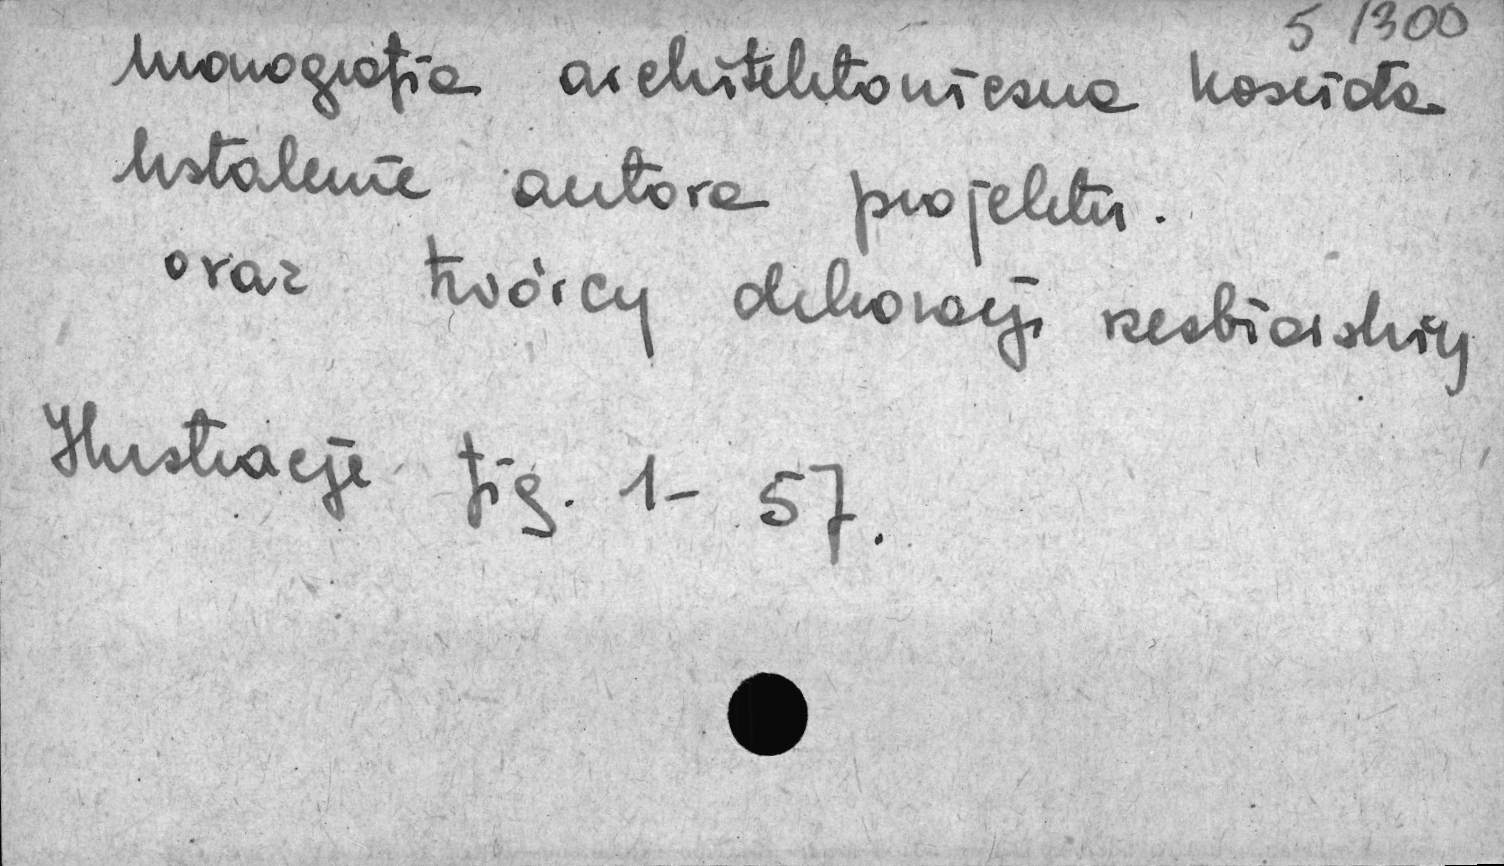 5 1300
Monografia architektoniczna kościoła
Ustalenie autora projektu.
oraz twórcy dekoracji rzeźbiarskiej
Ilustracje fig. 1- 57.